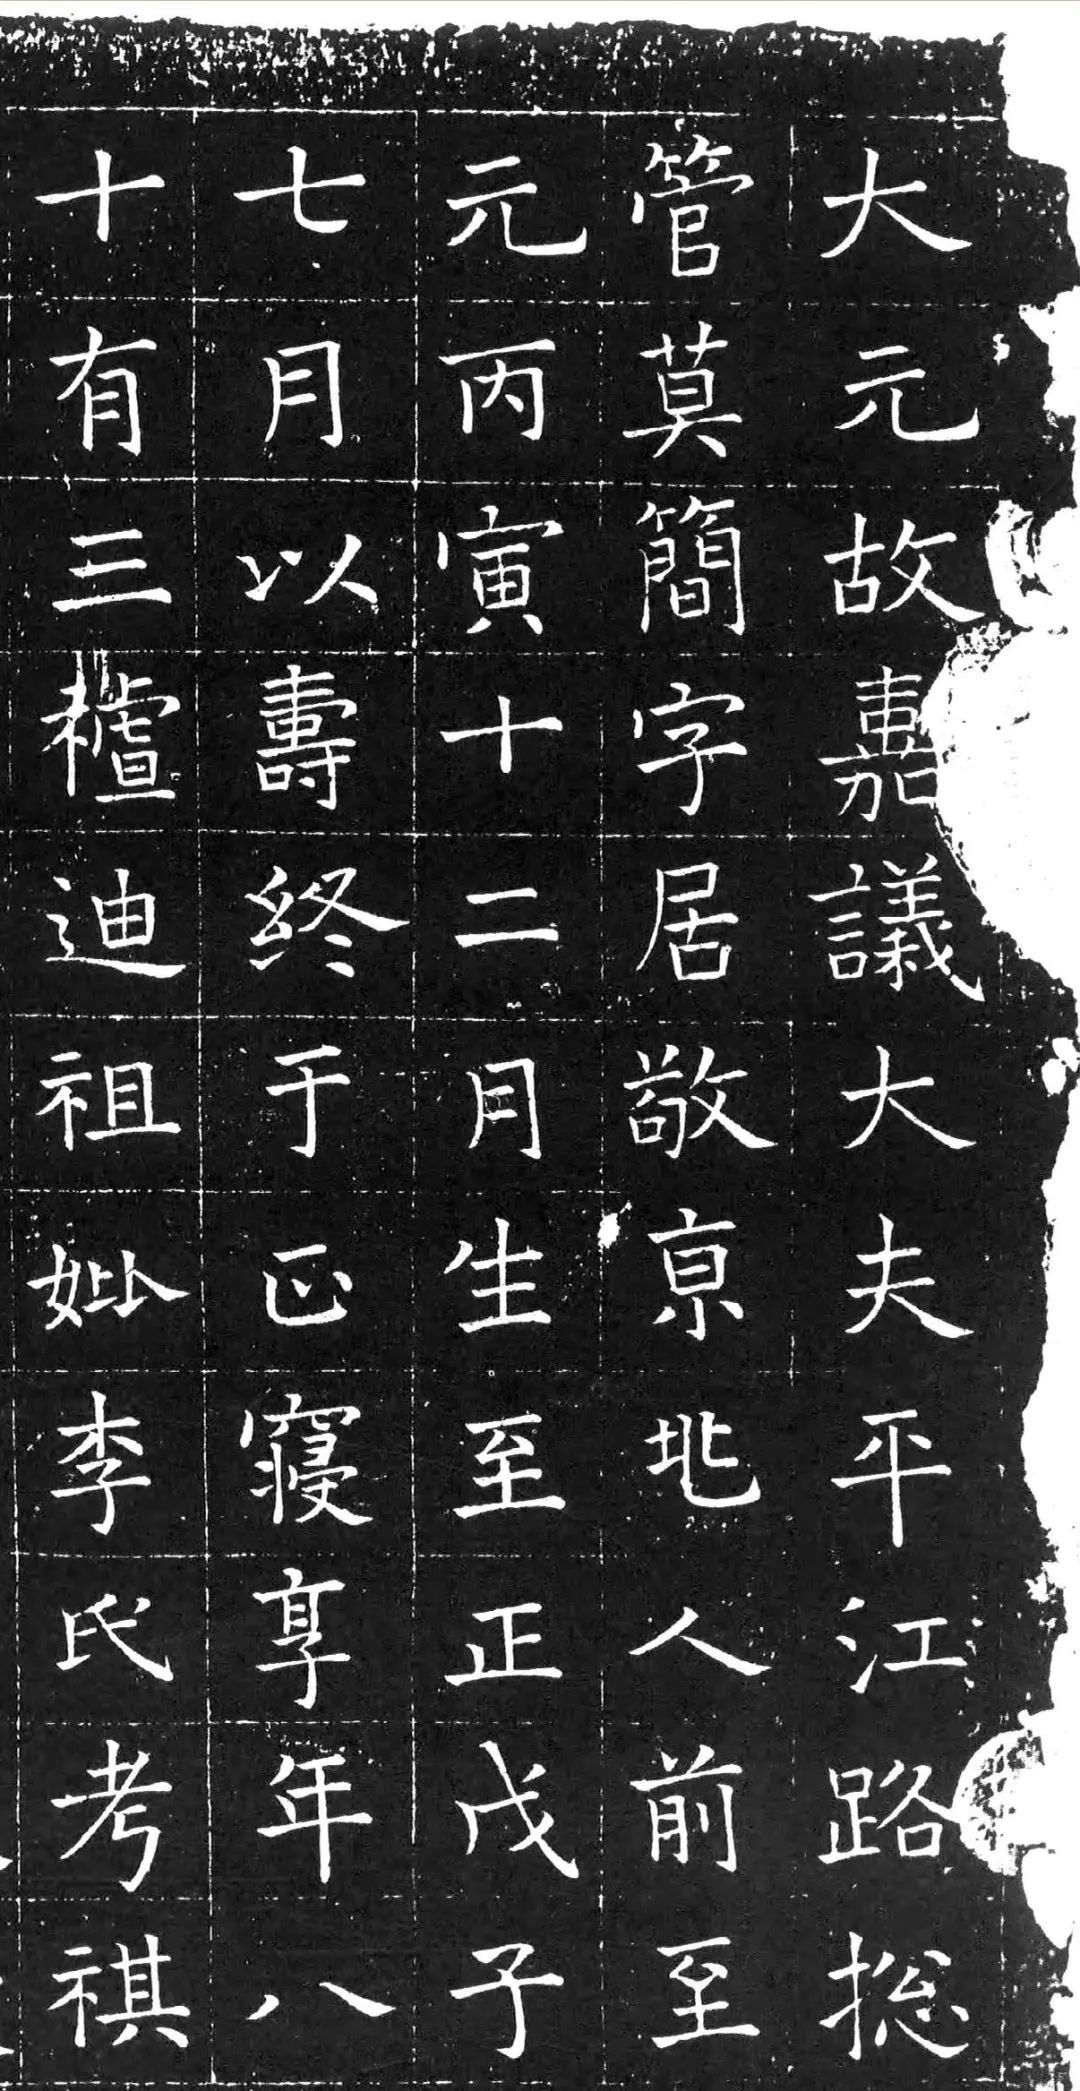 大元故嘉議大夫平江路捴
管莫簡字居敬京兆人前至
元丙寅十二月生至正戊子
七月以壽終于正寢享年八
十有三禮迪祖妣李氏考祺